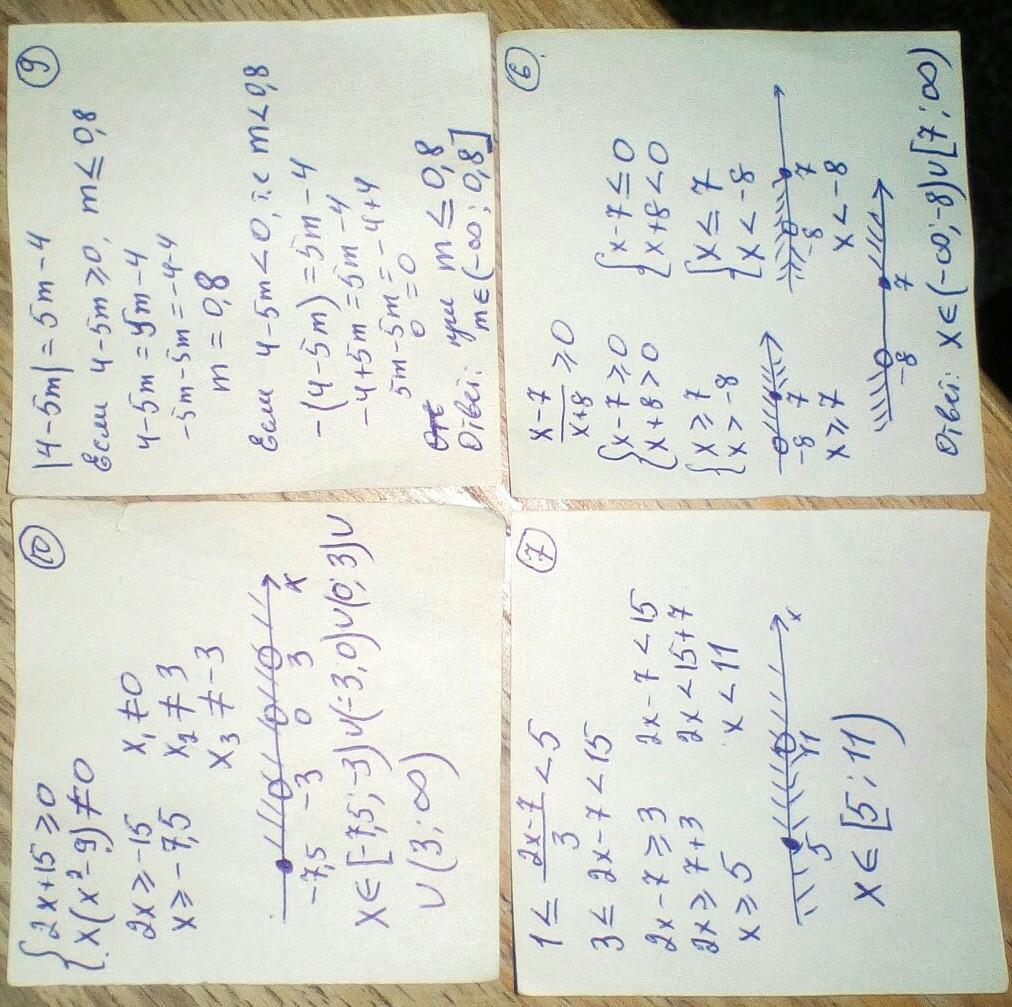 9
|4-5m| = 5m-4
Если 4-5m ≥ 0, m ≤ 0,8
4-5m = 5m-4
-5m-5m = -4-4
m = 0,8
Если 4-5m < 0, т.е m < 0,8
-(4-5m) = 5m-4
-4+5m = 5m-4
5m-5m = -4+4
0 = 0
Ответ: при m ≤ 0,8
m ∈ (-∞; 0,8]
6
x-7/x+8 ≥ 0
{x-7 ≥ 0
{x+8 > 0
{x ≥ 7
{x > -8
-8 7
x ≥ 7
{x-7 ≤ 0
{x+8 < 0
{x ≤ 7
{x < -8
-8 7
x < -8
-8 7
Ответ: x ∈ (-∞; -8) ∪ [7; ∞)
10
{2x+15 ≥ 0
{x(x²-9) ≠ 0
2x ≥ -15
x ≥ -7,5
x₁ ≠ 0
x₂ ≠ 3
x₃ ≠ -3
-7,5 -3 0 3 x
x ∈ [-7,5; -3) ∪ (-3; 0) ∪ (0; 3) ∪
∪ (3; ∞)
7
1 ≤ 2x-7/3 < 5
3 ≤ 2x-7 < 15
2x-7 ≥ 3
2x ≥ 7+3
x ≥ 5
2x-7 < 15
2x < 15+7
x < 11
5 11 x
x ∈ [5; 11)